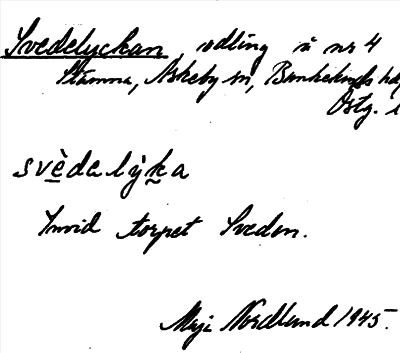 Svedelyckan, odling å nr 4
Stamma, Askeby sn, Bankekinds hd,
Östg. l
svèdelỳka
Invid torpet Sveden.
Maja Nordlund 1945.